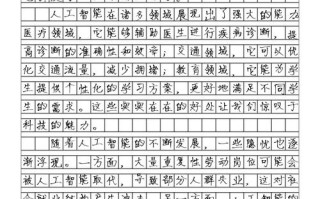 人工智能在诸多领域展现出了强大的能力
医疗领域，它能够辅助医生进行疾病诊断，提
高诊断的准确性和效率；交通领域，它可以优
化交通流量，减少拥堵；教育领域，它能为学
生提供个性化的学习方案，更好地满足不同学
生的需求。这些实实在在的好处让我们惊叹于
科技的魅力。
随着人工智能的不断发展，一些隐忧也逐
渐浮现。一方面，大量重复性劳动岗位可能会
被人工智能取代，导致部分人群失业，这对社